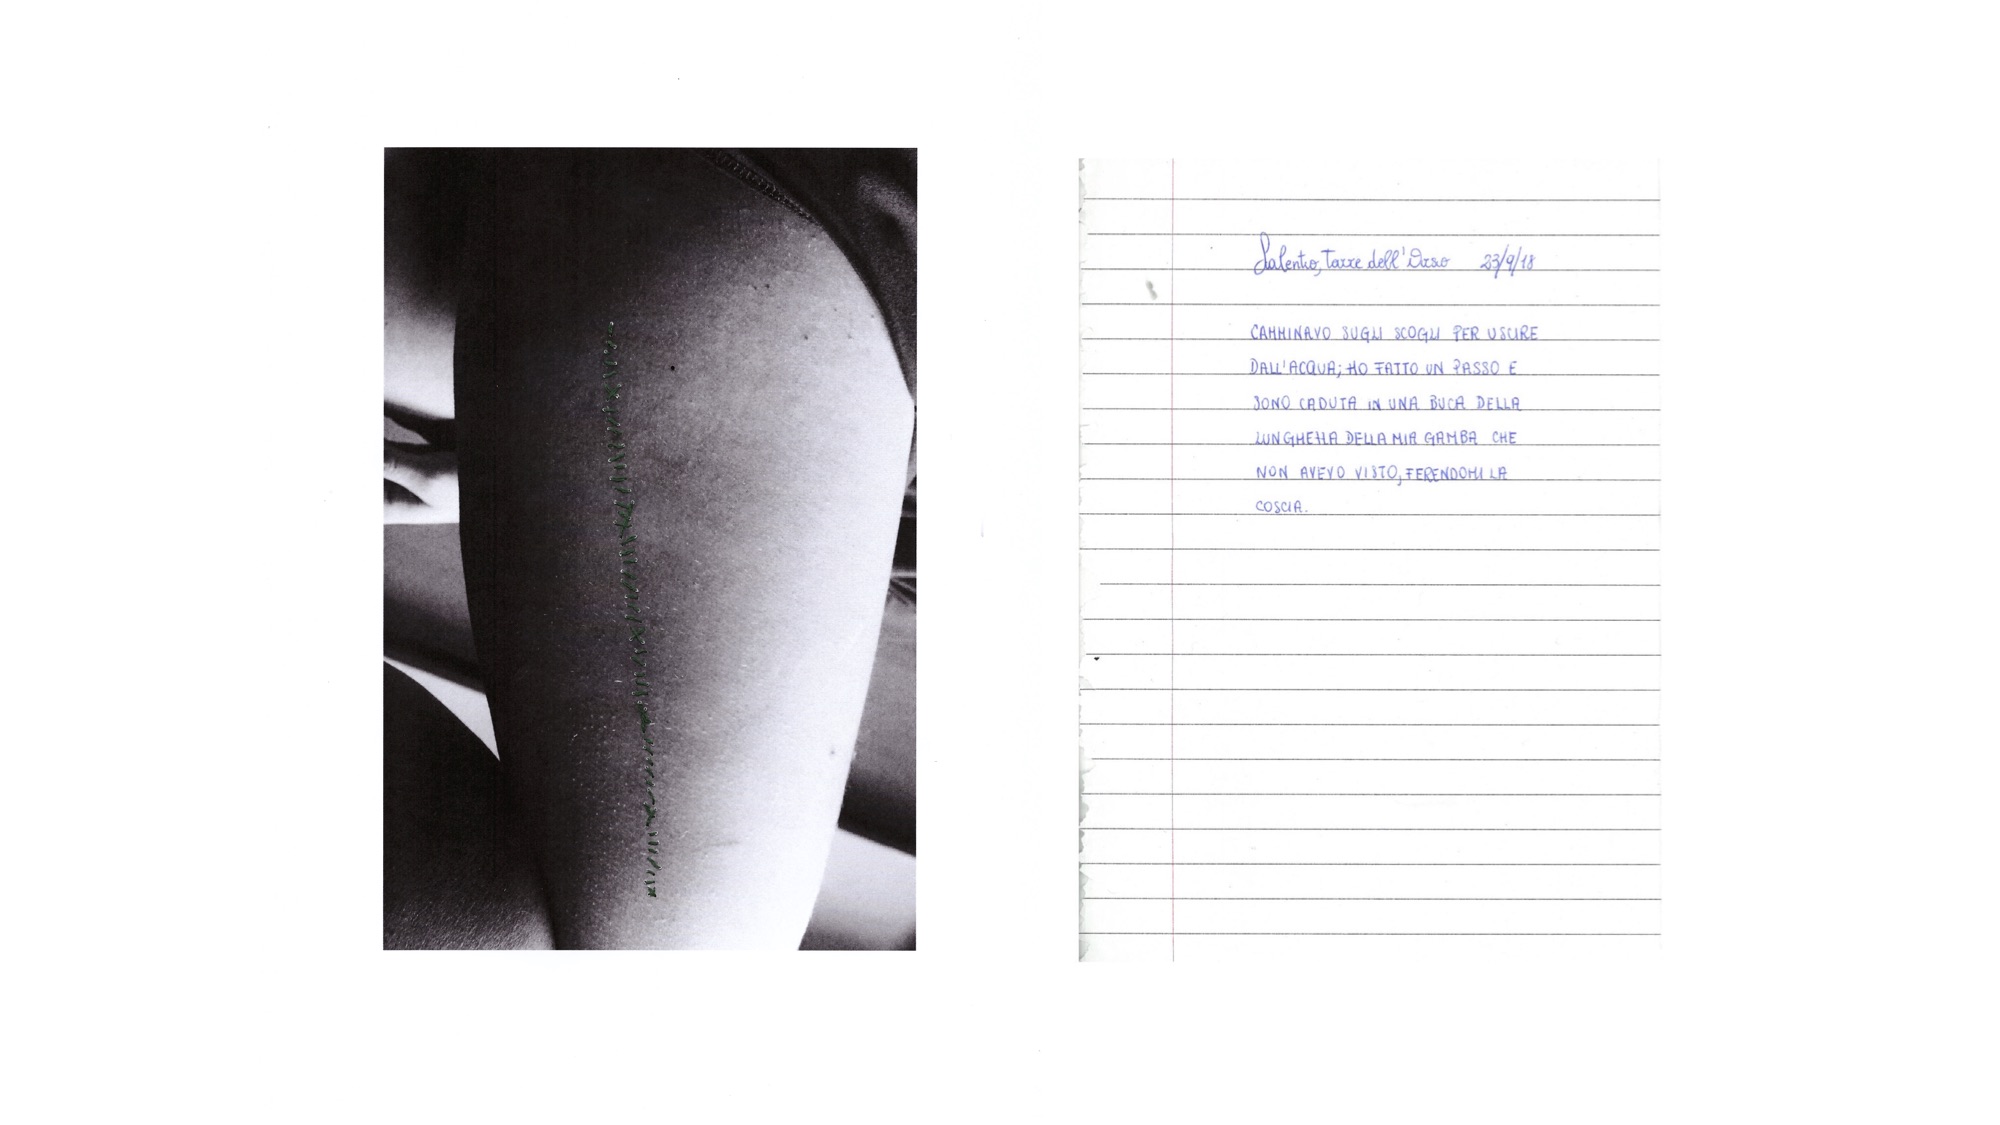 Salento, Torre dell'Orso 23/9/18
CAMMINAVO SUGLI SCOGLI PER USCIRE
DALL'ACQUA; HO FATTO UN PASSO E
SONO CADUTA IN UNA BUCA DELLA
LUNGHEZZA DELLA MIA GAMBA CHE
NON AVEVO VISTO, FERENDOMI LA
COSCIA.